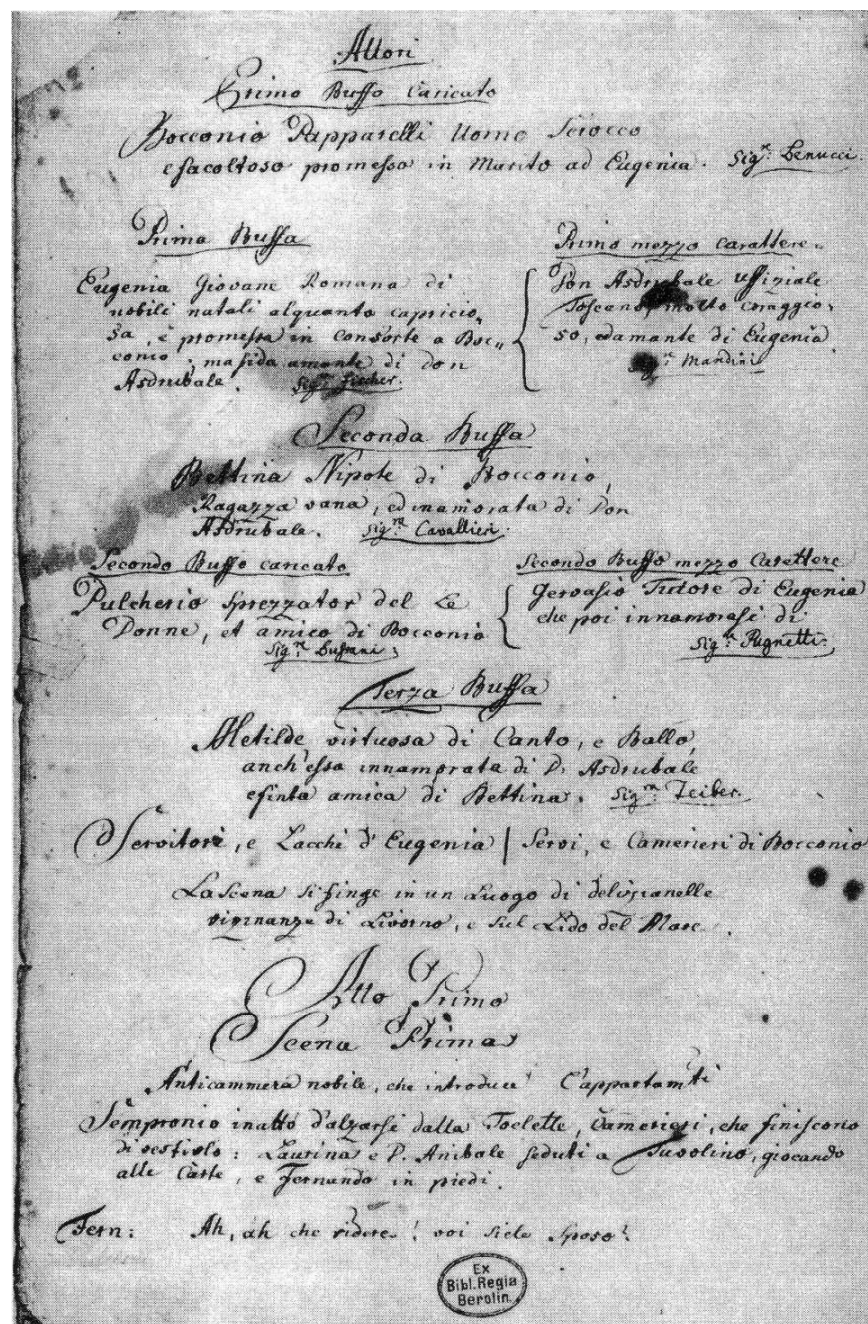 Attori
Primo Buffo Caricato
Bocconio Papparelli Uomo Sciocco
e facoltoso promesso in Marito ad Eugenia. Sigre: Benucci.
Prima Buffa
Eugenia Giovane Romana di
nobili natali alquanto capricio„
sa, è promessa in consorte a Boc„
conio; ma fida amante di Don
Asdrubale. Sigra: Fischer.
Primo mezzo carattere.
Don Asdrubale uffiziale
Toscano, molto coraggio„
so, ed amante di Eugenia
Sigre: Mandini
Seconda Buffa
Bettina Nipote di Bocconio,
Ragazza vana, ed inamorata di Don
Asdrubale. Sigra Cavallieri.
Secondo Buffo caricato
Pulcherio Sprezzator del Le
Donne, et amico di Bocconio
Sigre Bussani.
Secondo Buffo mezzo Carettere
Gervasio Tutore di Eugenia
che poi innamorasi di
Sigre: Pugnetti.
Terza Buffa
Metilde virtuosa di Canto, e Ballo,
anch'essa innamorata di D. Asdrubale
e finta amica di Bettina. Sigra: Teiber.
Servitori, e Lacchè d'Eugenia | Servi, e Camerieri di Bocconio
La scena si finge in un Luogo di delizia nelle
vicinanze di Livorno, e sul Lido del Mare.
Atto Primo
Scena Prima
Anticammera nobile, che introduce L'appartamti
Sempronio in atto d'alzarsi dalla Toclette, Camerieri, che finiscono
di vestirlo: Laurina e D. Anibale seduti a Tavolino, giocando
alle Carte, e Fernando in piedi.
Fern: Ah, ah che ridere! voi siete Sposo?
Ex
Bibl. Regia
Berolin.